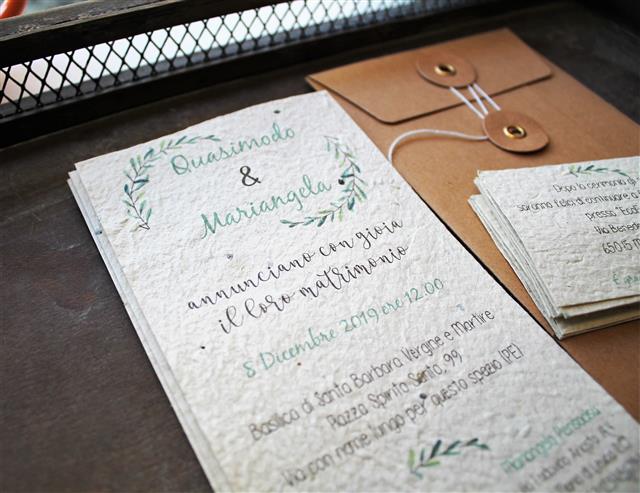 Quasimodo
&
Mariangela
annunciano con gioia
il loro matrimonio
8 Dicembre 2019 ore 12.00
Basilica di Santa Barbara Vergine e Martire
Piazza Spirito Santo, 99,
Via con nome lungo per questo spazio (PE)
Mariangela
Dopo la cerimonia gli
saranno felici di continuare a
presso
Via
65015
È